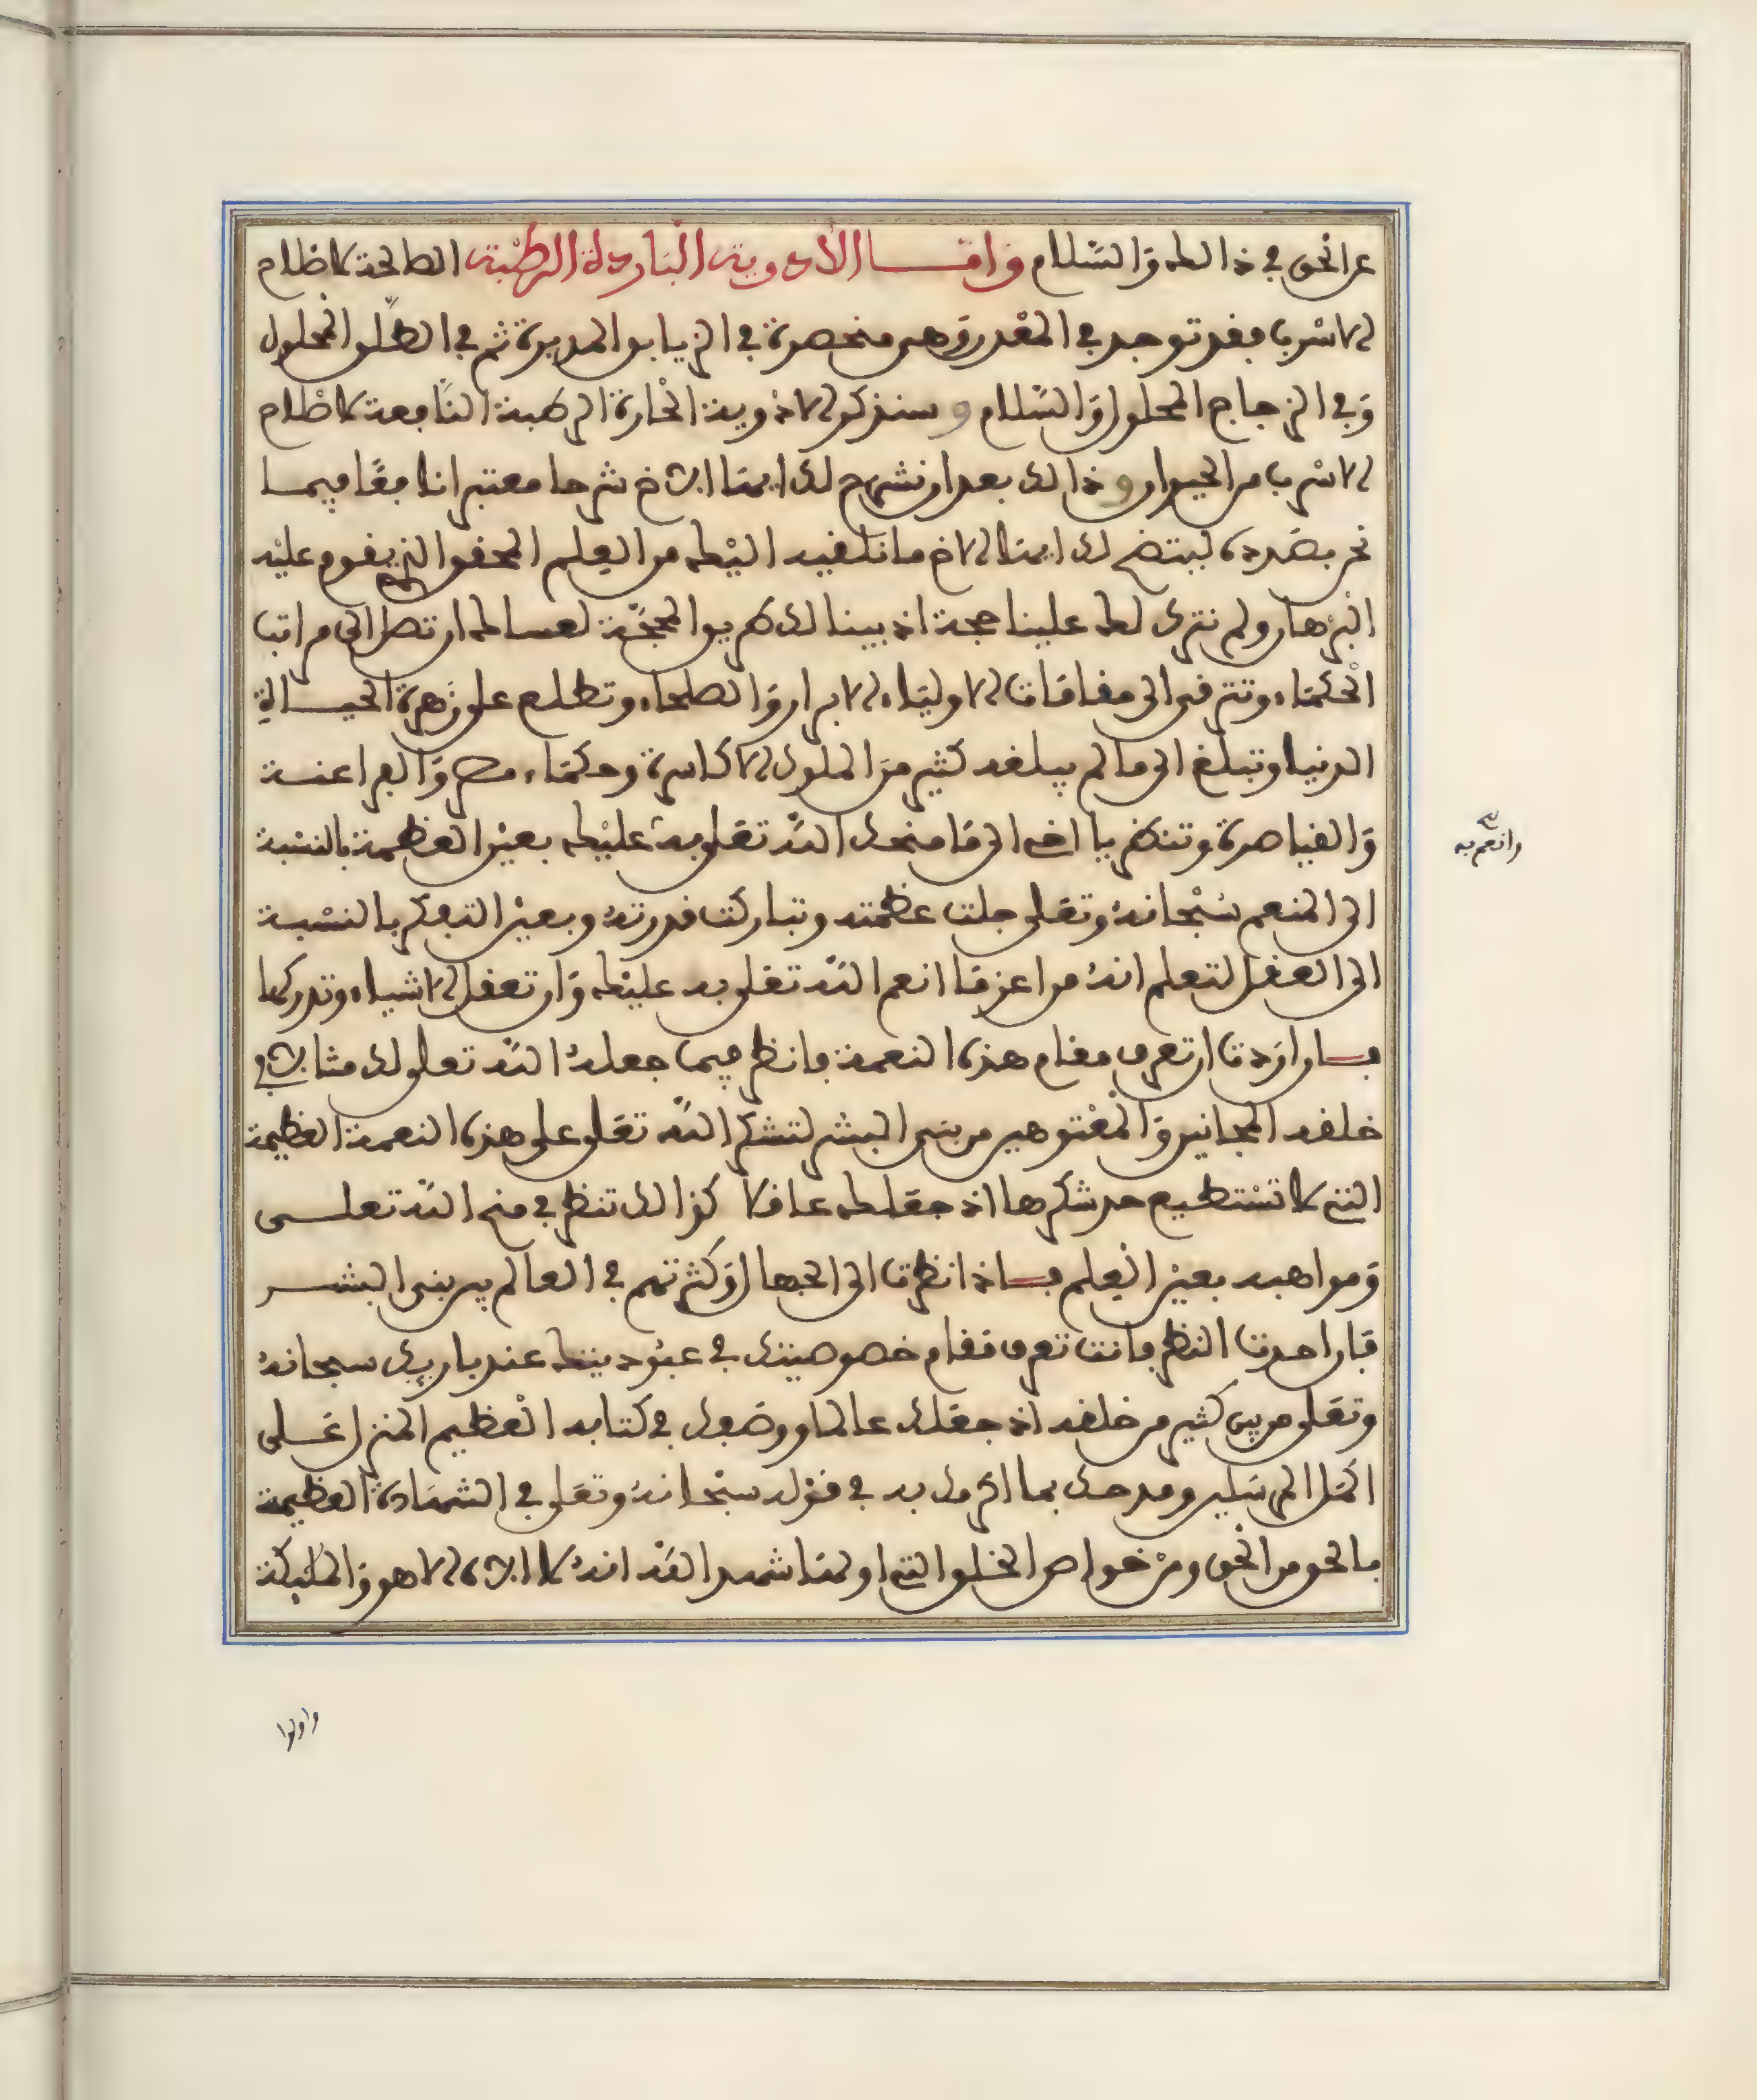 عن الحق في ذالك والسلام واما الادوية الباردة الرطبة الصالحة لاظلام
الاسرب فقد توجد في المعدن وهي منحصرة في الزيابق المدبرة ثم في الطلق المحلول
وفي الزجاج المحلول والسلام وسنذكر الادوية الحارة الرطبة النافعة لاظلام
الاسرب من الحيوان وذالك بعد ان نشرح لك ايها الاخ شرحا معتبرا نافعا فيما
نحن بصدده ليتضح لك ايها الاخ ما نلقيه اليك من العلم المحقق الذي يقوم عليه
البرهان ولم نترك لك علينا حجة اذ بينا لك طريق المحجة لعساك ان تصل الى مراتب
الحكماء وتترقى الى مقامات الاولياء الابرار والصلحاء وتطلع على زهرة الحياة
الدنيا وتبلغ الى ما لم يبلغه كثير من الملوك الاكاسرة وحكماء مصر والفراعنة
والقياصرة وتنظر يا اخي الى ما منحك الله تعلى به عليك بعين العظمة بالنسبة
الى المنعم سبحانه وتعلى جلت عظمته وتباركت قدرته وبعين التفكر بالنسبة
الى العقل لتعلم انه من اعز ما انعم الله تعلى به عليك وان تعقل الاشياء وتدركها
فان اردت ان تعرف مقام هذه النعمة فانظر فيما جعله الله تعلى لك مثالا في
خلقه المجانين والمعتوهين من بني البشر لتشكر الله تعلى على هذه النعمة العظيمة
التي لا تستطيع حد شكرها اذ جعلك عاقلا كذالك تنظر في منح الله تعلى
ومواهبه بعين العلم فاذا نظرت الى الجهال وكثرتهم في العالم بين بني البشر
فان احدت النظر فانت تعرف مقام خصوصيتك في عبوديتك عند باريك سبحانه
وتعلى من بين كثير من خلقه اذ جعلك عالما ووصفك في كتابه العظيم المنزل على
اكمل المرسلين ومدحك بما اكرمك به في قوله سبحانه وتعلى في الشهادة العظيمة
بالحق من الحق ومن خواص الخلق التي اولها شهد الله انه لا اله الا هو والمليكة
وانعم به
واولوا